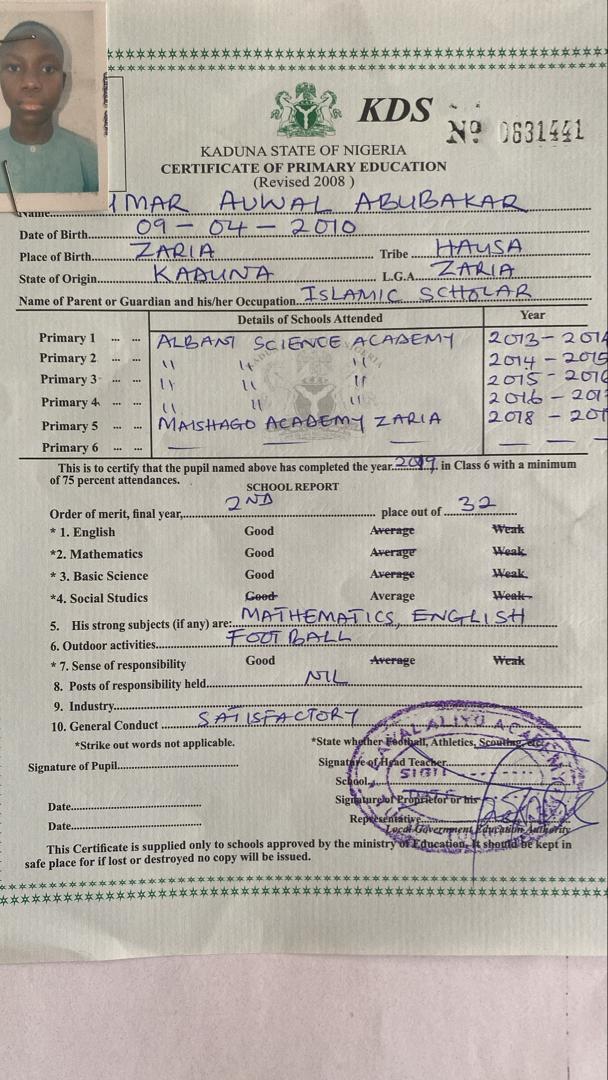 KDS
Nº 0631441
KADUNA STATE OF NIGERIA
CERTIFICATE OF PRIMARY EDUCATION
(Revised 2008 )
Name MAR AUWAL ABUBAKAR
Date of Birth 09-04-2010
Place of Birth ZARIA Tribe HAUSA
State of Origin KADUNA L.G.A. ZARIA
Name of Parent or Guardian and his/her Occupation ISLAMIC SCHOLAR
Details of Schools Attended Year
Primary 1 ... ... ALBANI SCIENCE ACADEMY 2013-2014
Primary 2 ... ... " " " 2014-2015
Primary 3 ... ... " " " 2015-2016
Primary 4 ... ... " " " 2016-201
Primary 5 ... ... MAISHAGO ACADEMY ZARIA 2018-201
Primary 6 ... ... — — — — — —
This is to certify that the pupil named above has completed the year 2019 in Class 6 with a minimum
of 75 percent attendances.
SCHOOL REPORT
Order of merit, final year, 2ND place out of 32
* 1. English Good Average Weak
*2. Mathematics Good Average Weak
* 3. Basic Science Good Average Weak
*4. Social Studies Good Average Weak
5. His strong subjects (if any) are: MATHEMATICS, ENGLISH
6. Outdoor activities FOOTBALL
* 7. Sense of responsibility Good Average Weak
8. Posts of responsibility held NIL
9. Industry
10. General Conduct SATISFACTORY
*Strike out words not applicable. *State whether Football, Athletics, Scouting, etc.
Signature of Pupil Signature of Head Teacher
School
SIGN
Date Signature of Proprietor or his
Date Representative
Local Government Education Authority
This Certificate is supplied only to schools approved by the ministry of Education. It should be kept in
safe place for if lost or destroyed no copy will be issued.